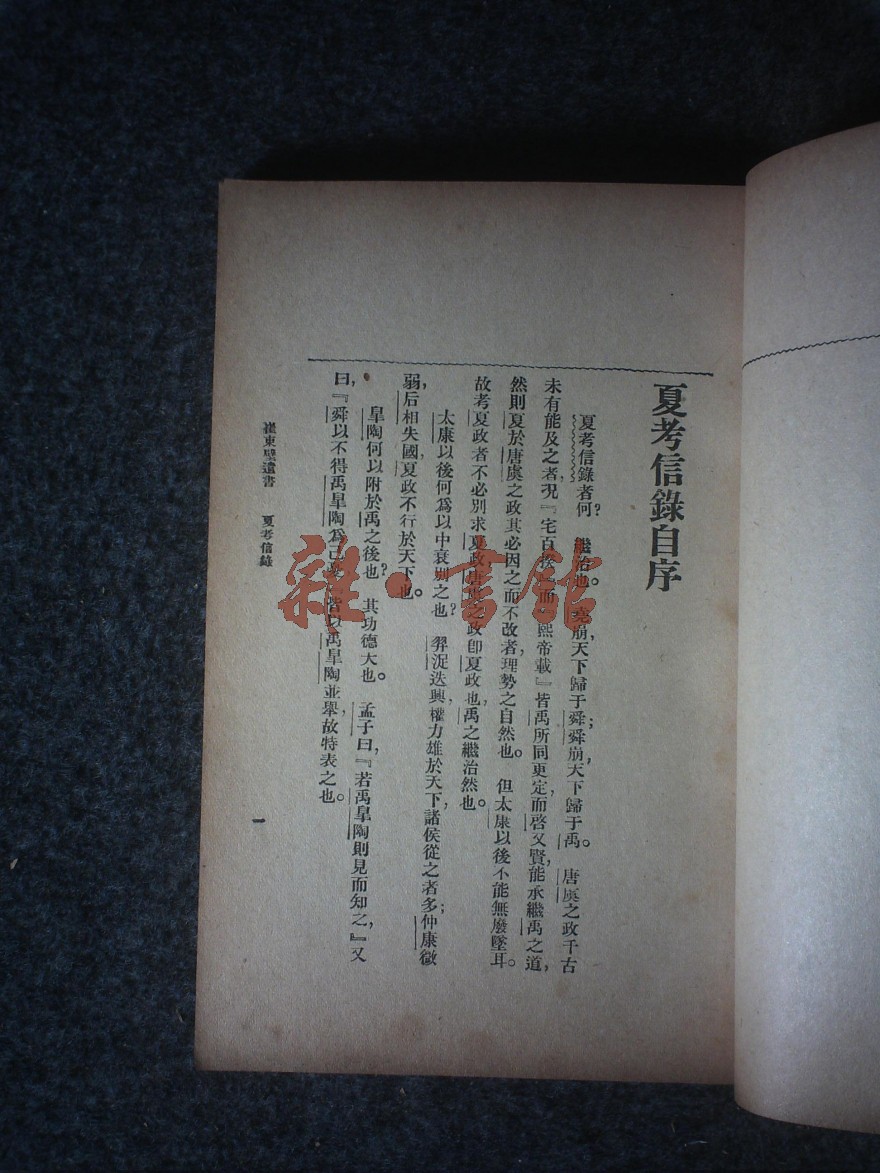 夏考信錄自序
夏考信錄者何？　繼治也。堯崩，天下歸于舜；舜崩，天下歸于禹。　唐虞之政千古
未有能及之者，況『宅百揆』而『熙帝載』皆禹所同更定，而啓又賢，能承繼禹之道，
然則夏於唐虞之政其必因之而不改者，理勢之自然也。　但太康以後不能無廢墜耳。
故考夏政者不必別求夏政，唐虞之政卽夏政也，禹之繼治然也。
太康以後何爲以中衰別之也？　羿浞迭興，權力雄於天下，諸侯從之者多；仲康微
弱，后相失國，夏政不行於天下也。
臯陶何以附於禹之後也？　其功德大也。　孟子曰，『若禹臯陶則見而知之，』又
曰，『舜以不得禹臯陶爲己憂，』皆以禹臯陶並舉，故特表之也。
崔東壁遺書　夏考信錄
一
雜·書館